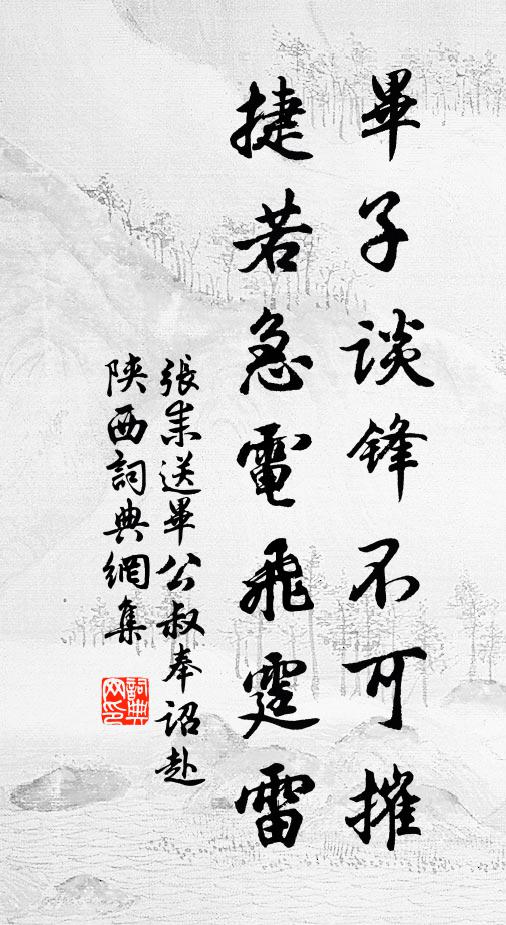 畢子談鋒不可摧
捷若急電飛霆雷
張耒送畢公叔奉詔赴
陝西詞典網集
詞典
网印